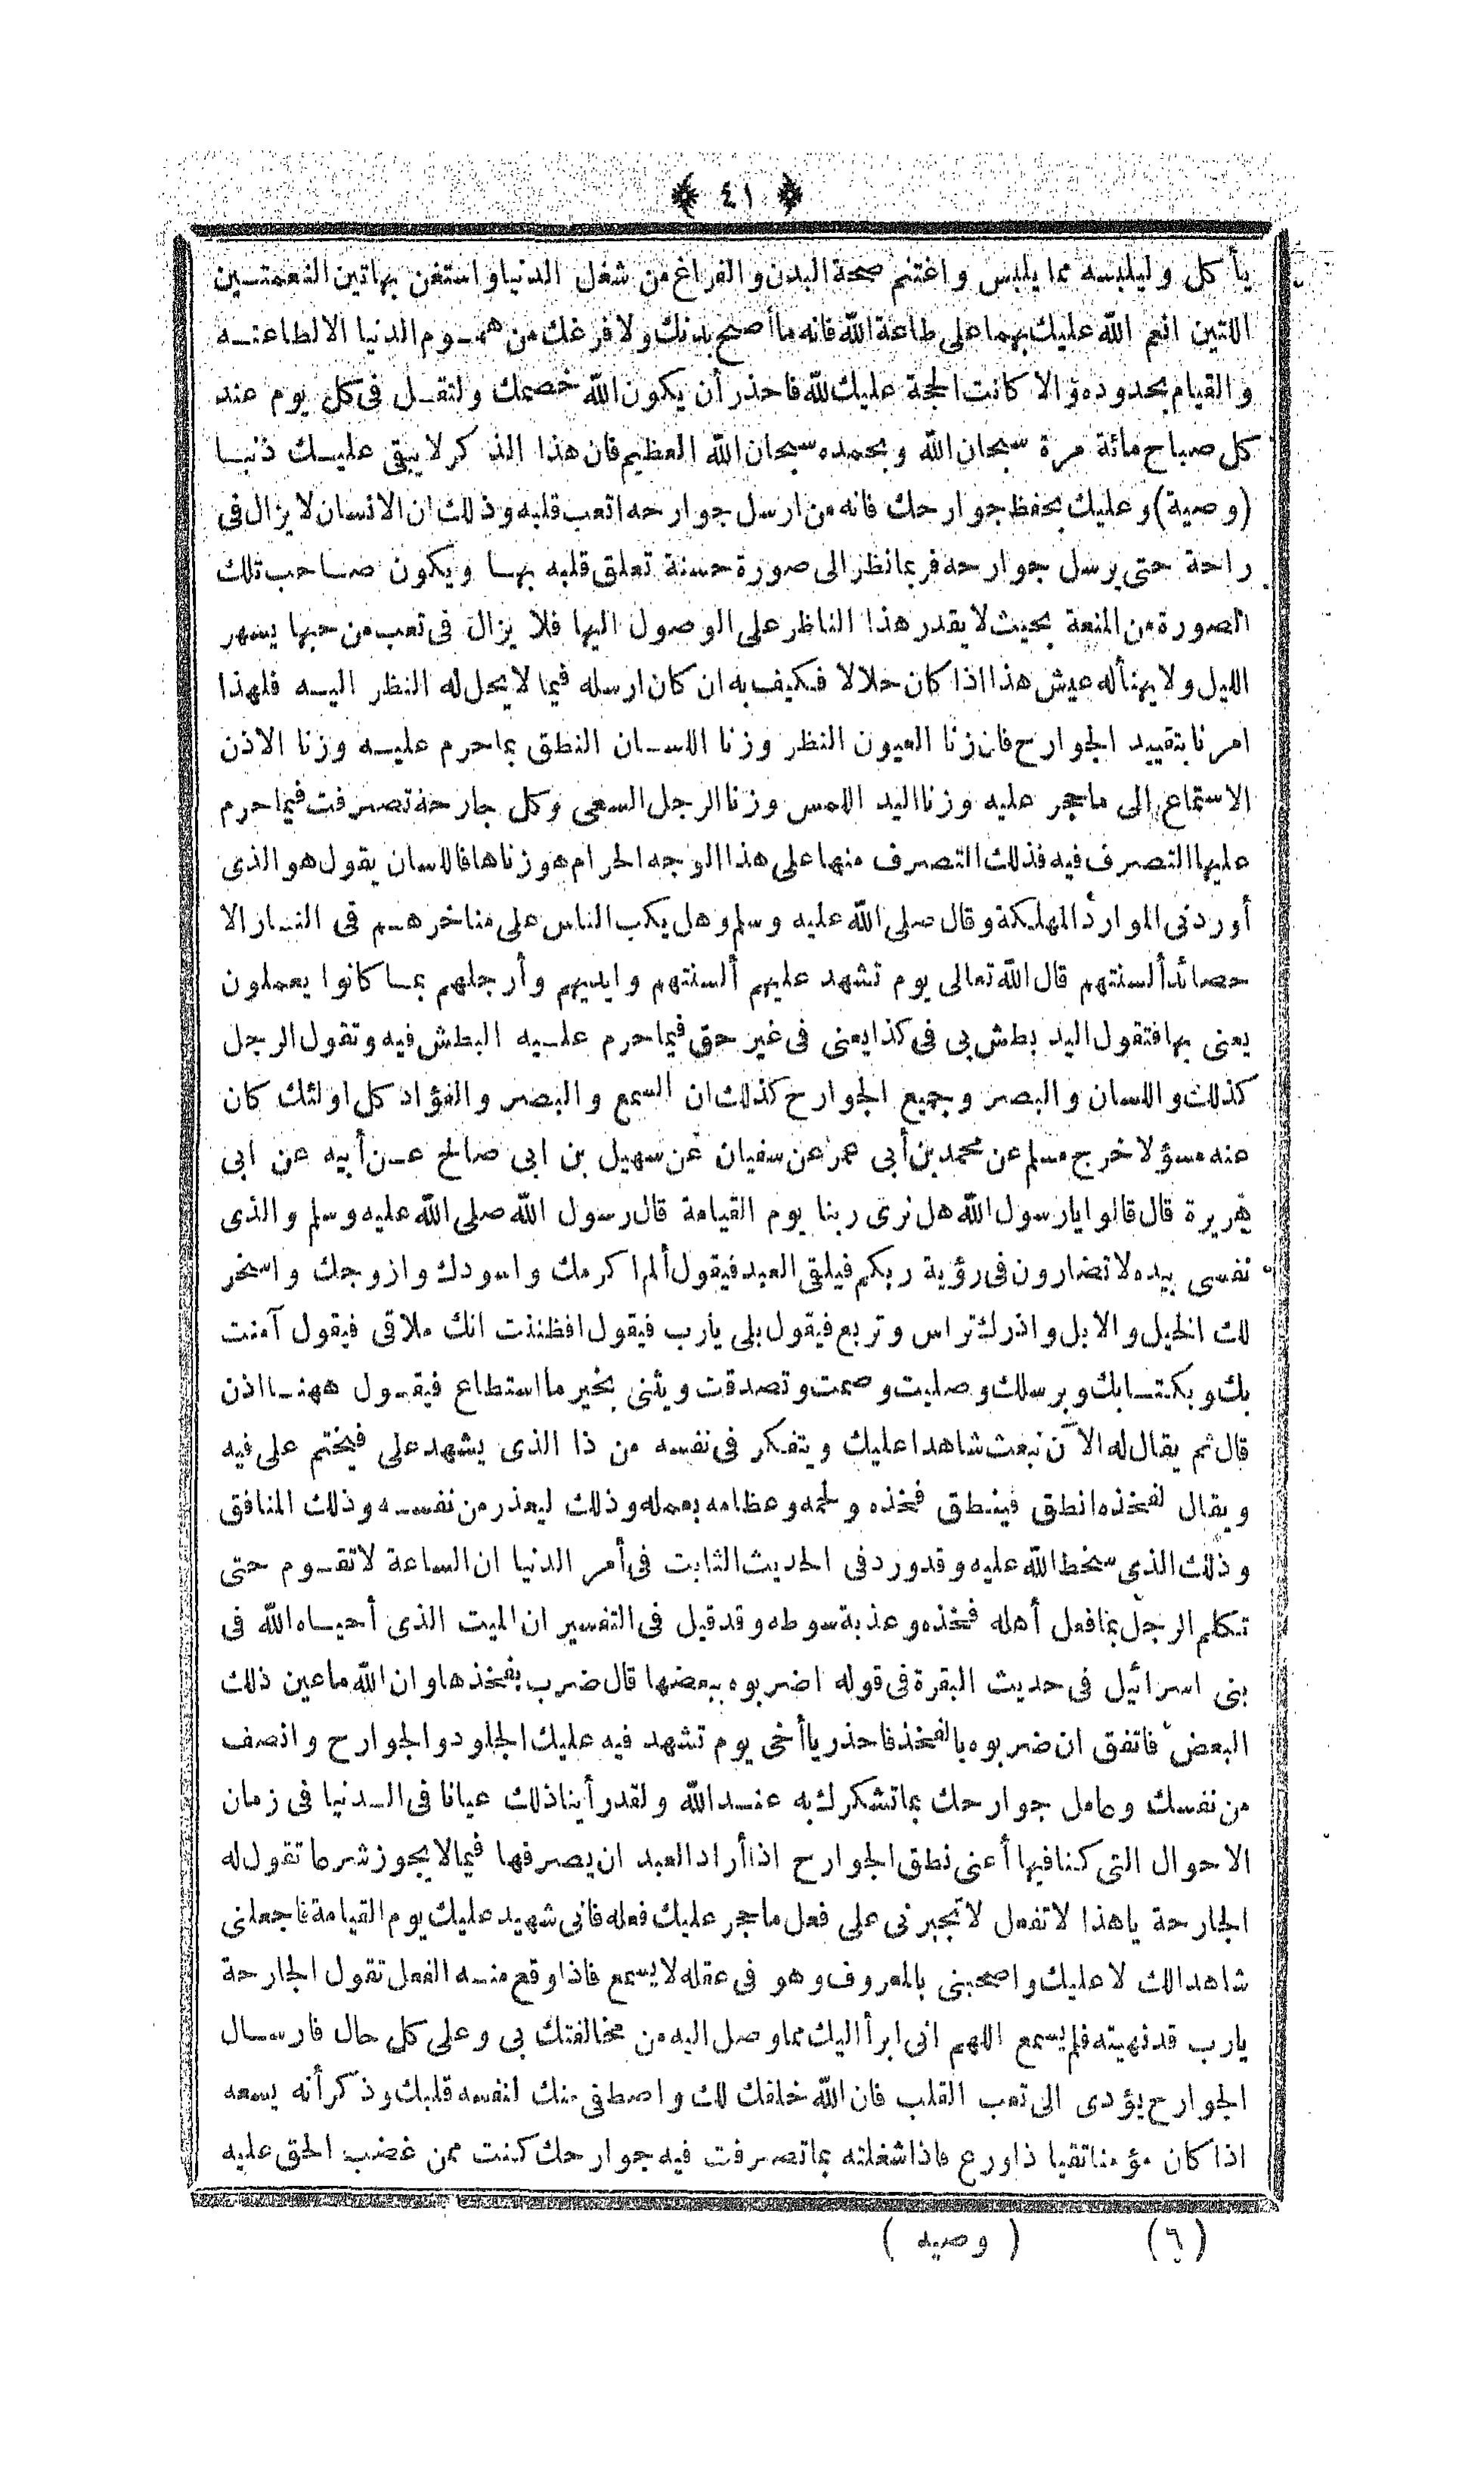 ﴿ ٤١ ﴾
يأكل وليلبسه مما يلبس واغتنم صحة البدن والفراغ من شغل الدنيا واستغن بهاتين النعمتين
اللتين انعم الله عليك بهما على طاعة الله فانه ما أصح بدنك ولا فرغك من هموم الدنيا الا لطاعته
والقيام بحدوده والا كانت الحجة عليك لله فاحذر أن يكون الله خصمك ولتقل فى كل يوم عند
كل صباح مائة مرة سبحان الله وبحمده سبحان الله العظيم فان هذا الذكر لا يبقى عليك ذنبا
(وصية) وعليك بحفظ جوارحك فانه من ارسل جوارحه اتعب قلبه وذلك ان الانسان لا يزال فى
راحة حتى يرسل جوارحه فربما نظر الى صورة حسنة تعلق قلبه بها ويكون صاحب تلك
الصورة من المنعة بحيث لا يقدر هذا الناظر على الوصول اليها فلا يزال فى تعب من حبها يسهر
الليل ولا يهنأ له عيش هذا اذا كان حلالا فكيف به ان كان ارسله فيما لا يحل له النظر اليه فلهذا
امرنا بتقييد الجوارح فان زنا العيون النظر وزنا اللسان النطق بما حرم عليه وزنا الاذن
الاستماع الى ما حجر عليه وزنا اليد اللمس وزنا الرجل السعى وكل جارحة تصرفت فيما حرم
عليها التصرف فيه فذلك التصرف منها على هذا الوجه الحرام هو زناها فاللسان يقول هو الذى
أوردنى الموارد المهلكة وقال صلى الله عليه وسلم وهل يكب الناس على مناخرهم فى النار الا
حصائد ألسنتهم قال الله تعالى يوم تشهد عليهم ألسنتهم وايديهم وأرجلهم بما كانوا يعملون
يعنى بها فتقول اليد بطش بى فى كذا يعنى فى غير حق فيما حرم عليه البطش فيه وتقول الرجل
كذلك واللسان والبصر وجميع الجوارح كذلك ان السمع والبصر والفؤاد كل اولئك كان
عنه مسؤلا خرج مسلم عن محمد بن أبى عمر عن سفيان عن سهيل بن ابى صالح عن أبيه عن ابى
هريرة قال قالوا يا رسول الله هل نرى ربنا يوم القيامة قال رسول الله صلى الله عليه وسلم والذى
نفسى بيده لا تضارون فى رؤية ربكم فيلقى العبد فيقول ألم اكرمك واسودك وازوجك واسخر
لك الخيل والابل واذرك تراس وتربع فيقول بلى يارب فيقول افظننت انك ملاقى فيقول آمنت
بك وبكتابك وبرسلك وصليت وصمت وتصدقت ويثنى بخير ما استطاع فيقول ههنا اذن
قال ثم يقال له الآن نبعث شاهدا عليك ويتفكر فى نفسه من ذا الذى يشهد على فيختم على فيه
ويقال لفخذه انطق فينطق فخذه ولحمه وعظامه بعمله وذلك ليعذر من نفسه وذلك المنافق
وذلك الذى سخط الله عليه وقد ورد فى الحديث الثابت فى أمر الدنيا ان الساعة لا تقوم حتى
تكلم الرجل بما فعل أهله فخذه وعذبة سوطه وقد قيل فى التفسير ان الميت الذى أحياه الله فى
بنى اسرائيل فى حديث البقرة فى قوله اضربوه ببعضها قال ضرب بفخذها وان الله ما عين ذلك
البعض فاتفق ان ضربوه بالفخذ فاحذر يا أخى يوم تشهد فيه عليك الجلود والجوارح وانصف
من نفسك وعامل جوارحك بما تشكرك به عند الله ولقد رأينا ذلك عيانا فى الدنيا فى زمان
الاحوال التى كنا فيها أعنى نطق الجوارح اذا أراد العبد ان يصرفها فيما لا يجوز شرعا تقول له
الجارحة يا هذا لا تفعل لا تجبرنى على فعل ما حجر عليك فعله فانى شهيد عليك يوم القيامة فاجعلنى
شاهدا لك لا عليك واصحبنى بالمعروف وهو فى عقله لا يسمع فاذا وقع منه الفعل تقول الجارحة
يارب قد نهيته فلم يسمع اللهم انى ابرأ اليك مما وصل اليه من مخالفتك بى وعلى كل حال فارسال
الجوارح يؤدى الى تعب القلب فان الله خلقك لك واصطفى منك لنفسه قلبك وذكر أنه يسعه
اذا كان مؤمنا تقيا ذا ورع فاذا شغلته بما تصرفت فيه جوارحك كنت ممن غضب الحق عليه
(٦) (وصيه)